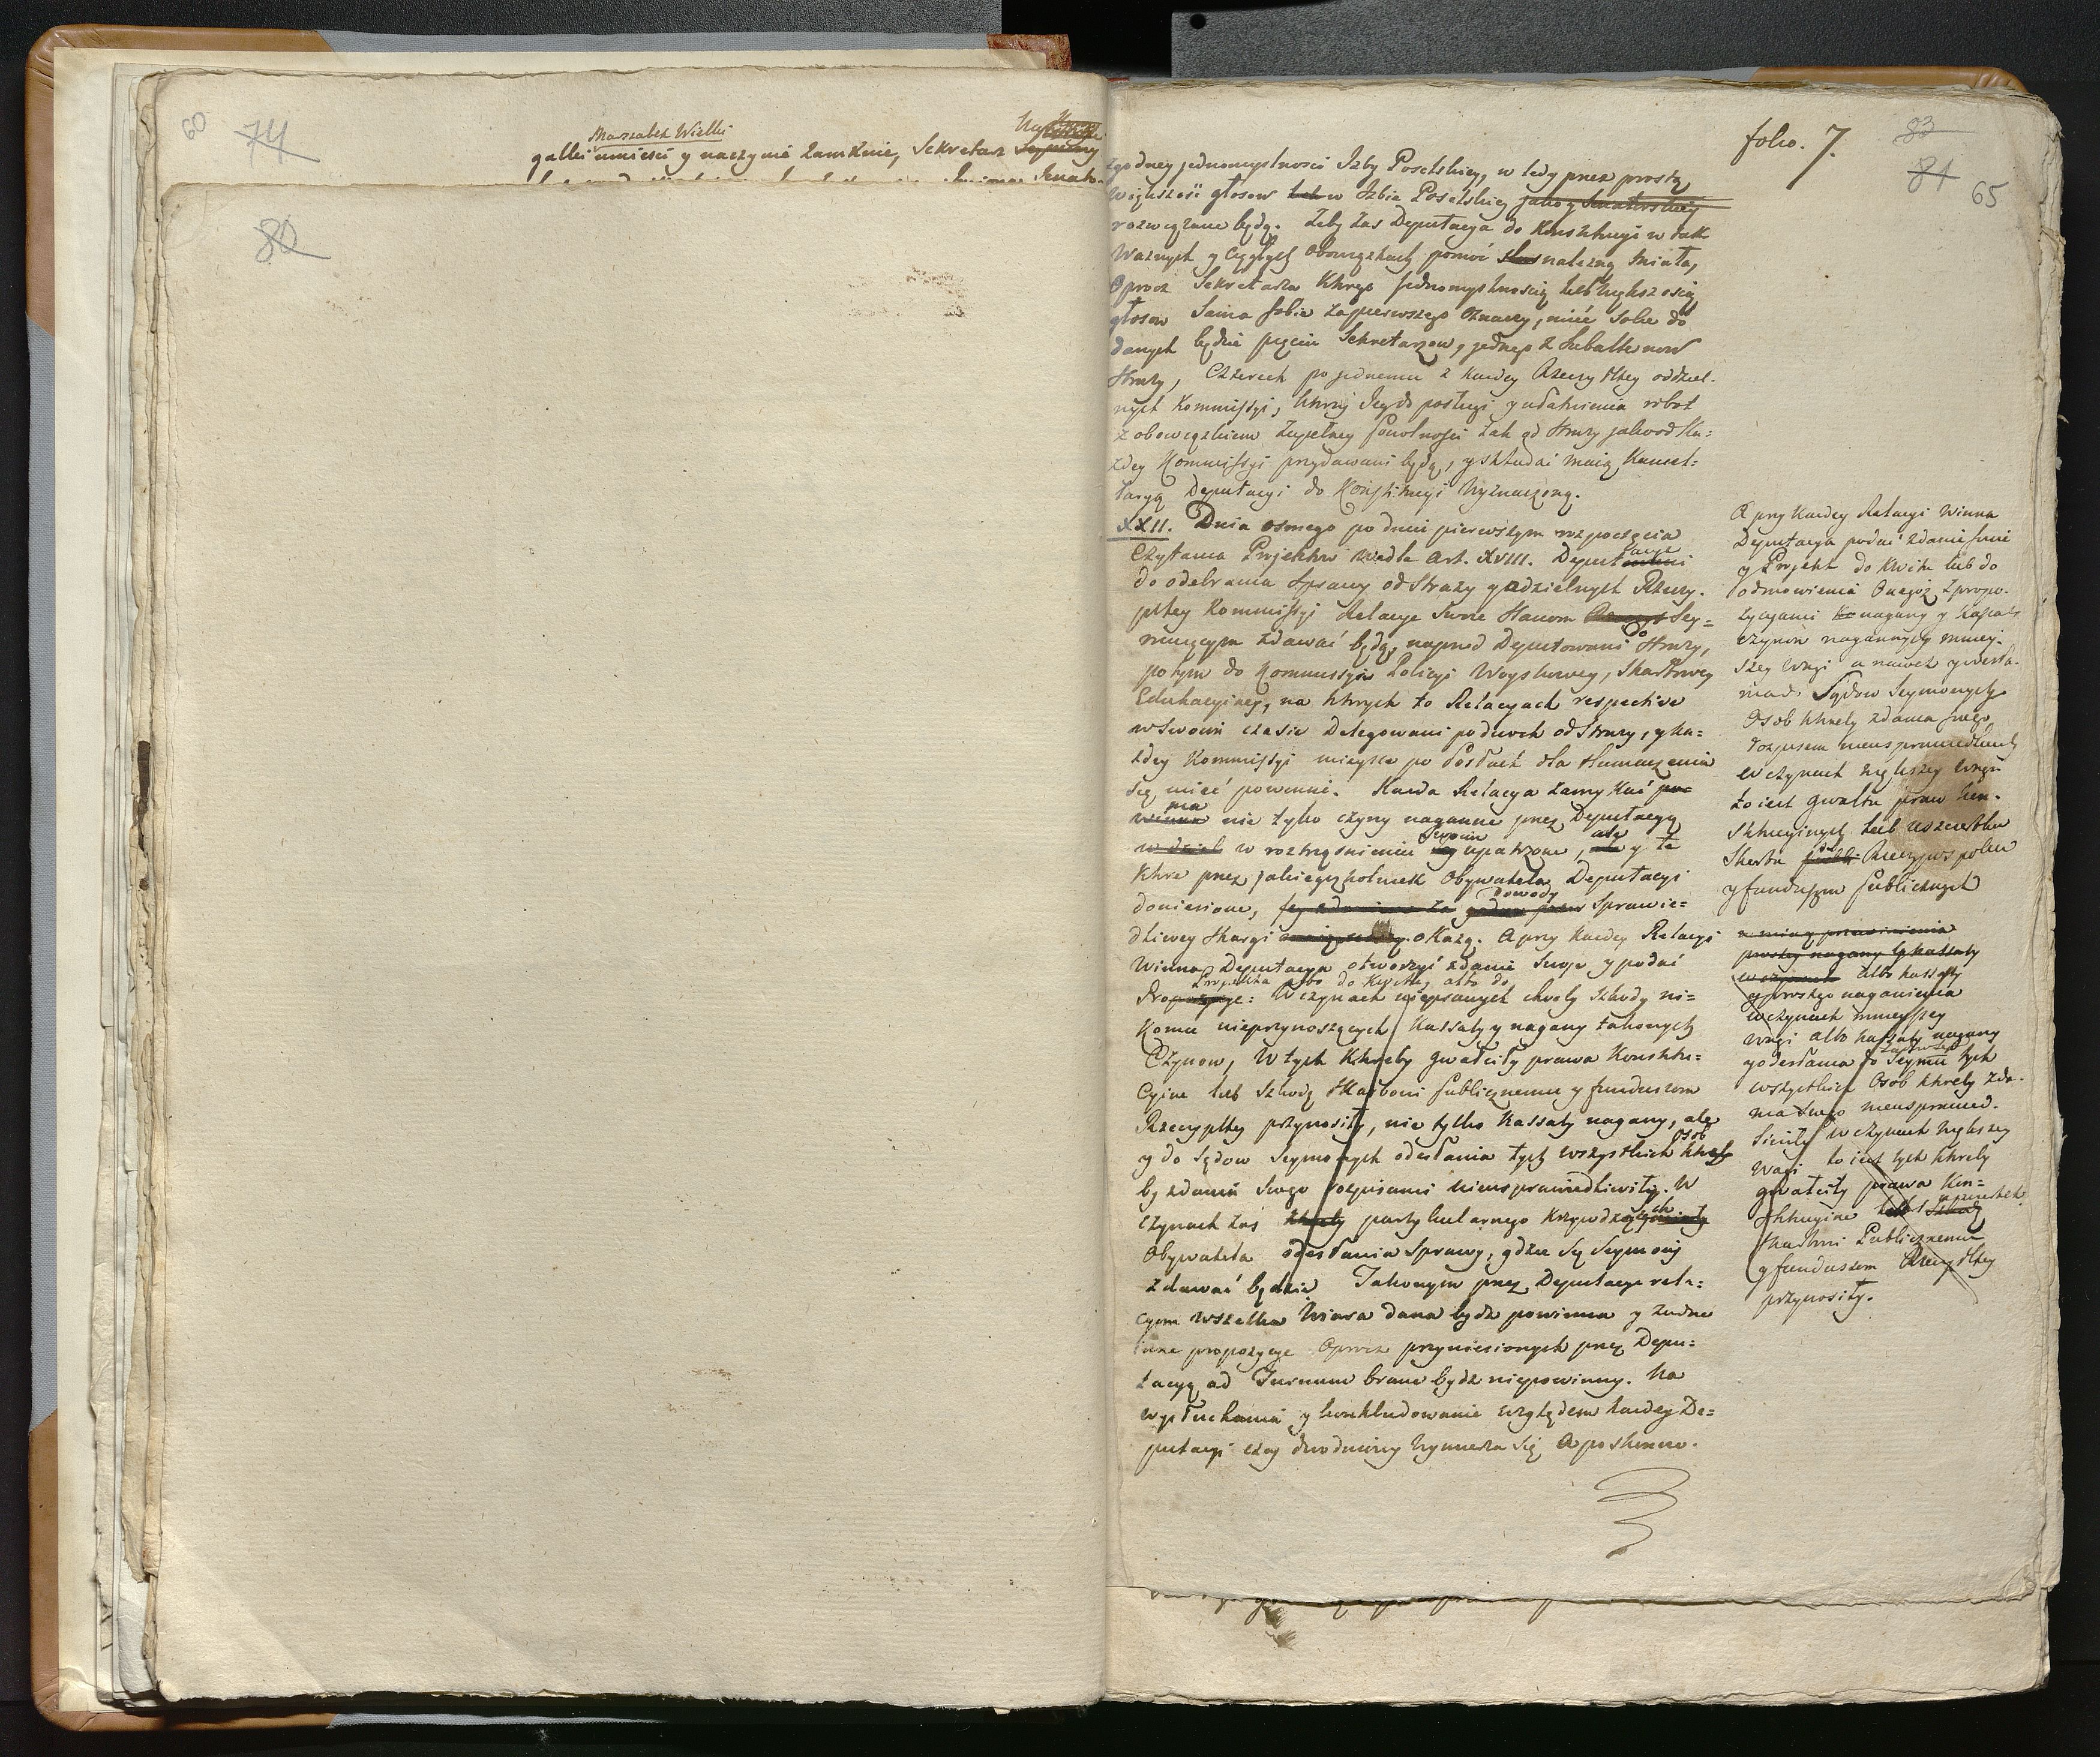 60
74
Marszałek Wielki
gallei umieści y naczynie zamknie, Sekretarz
Senato-
80
folio. 7.
83
81
65
zgodney jednomyślności Izby Poselskiey, w tedy przez prostą
większość głosow tak w Izbie Poselskiey jako y Senatorskiey
rozwiązane będą. Żeby zas Deputacya do Konstytucyi w tak
ważnych y ciągłych obowiązkach pomoc należną miała,
Oprocz Sekretarza ktorego jednomyślnością lub większością
głosow sama sobie za pierwszego oznaczy, mieć sobie do
danych będzie pięciu Sekretarzow, jednego z Subalternow
Straży, Czterech po jednemu z każdey Rzeczy Pltey oddziel-
nych Kommissyi, ktorzy
z obowiązkiem zupełney powolności tak od Straży jako od Ka=
żdey Kommissyi przydawani będą, y składać maią Kancel=
laryą Deputacyi do Konstytucyi wyznaczoną.
XXII. Dnia osmego po dniu pierwszym rozpoczęcia
Czytania Projektow wedle Art. XVIII. Deputacye
do odebrania sprawy od Straży y oddzielnych Rzeczy-
pltey Kommissyi Relacye swoie Stanom Sey=
muiącym zdawać będą, naprzod Deputowani do Straży,
potym do Kommissyi Policyi Woyskowey, Skarbowey
Edukacyiney, na ktorych to Relacyach respective
w swoim czasie Delegowani po dwoch od Straży, y ka=
żdey Kommissyi mieysce po Posłach dla tłumaczenia
się mieć powinni. Każda Relacya zamykać po=
winna ma nie tylko czyny naganne przez Deputacyą
w roztrząśnieniu swoim upatrzone, ale y te
ktore przez jakiegożkolwiek Obywatela Deputacyi
doniesione, dowody Sprawie=
dliwey skargi okażą. A przy każdey Relacyi
Winna Deputacya otworzyć zdanie swoje y podać
Projekta albo do Kwitu, albo do
Propozycye: W czynach
komu nieprzynoszących kassaty y nagany takowych
Czynow, W tych ktoreby gwałciły prawa Konstytu=
cyine lub szkodę Skarbowi publicznemu y funduszom
Rzeczypltey przynosiły, nie tylko kassaty nagany, ale
y do Sądow Seymowych odesłania tych wszystkich osob
by zdania swego rozpisami nieusprawiedliwiły. W
czynach zaś partykularnego krzywdzących
Obywatela odesłania Sprawy, gdzie się Seymowi
zdawać będzie Takowym przez Deputacye rela=
cyom wszelka Wiara dana bydź powinna y żadne
inne propozycye Oprocz przyniesionych przez Depu=
tacyą ad Turnum brane bydź niepowinny. Na
wysłuchania y konkludowanie względem każdey De=
putacyi czas dwodniowy wymierza się
A przy każdey Relacyi Winna
Deputacya podać zdanie swoie
y Projekt do Kwitu lub do
odmowienia Onegoż z propo-
zycyami nagany y Kassaty
czynow nagannych mniey-
szey wagi a nawet y odesła-
nia do Sądow Seymowych
Osob ktoreby zdania swego
rozpisem nieusprawiedliwiły
w czynach większey wagi
to iest gwałtu praw kon-
stytucyinych lub uszczerbku
Skarbu Rzeczypospoltey
y funduszow publicznych
prostey nagany
albo kassaty
y prostego naganienia
w czynach mnieyszey
wagi albo kassaty nagany
y odesłania do Seymu tych
wszystkich Osob ktoreby zda-
nia swego nieusprawied-
liwiły w czynach większey
wagi to iest tych ktoreby
gwałciły prawa kon=
stytucyine lub szkodę uszczerbek
Skarbowi Publicznemu
y funduszom Rzeczypltey
przynosiły.